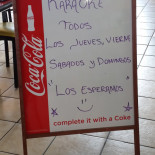 KARAOKE
TODOS
LOS JUEVES, VIERNE
SABADOS Y DOMINGOS
"LOS ESPERAMOS"
Coca-Cola
complete it with a Coke